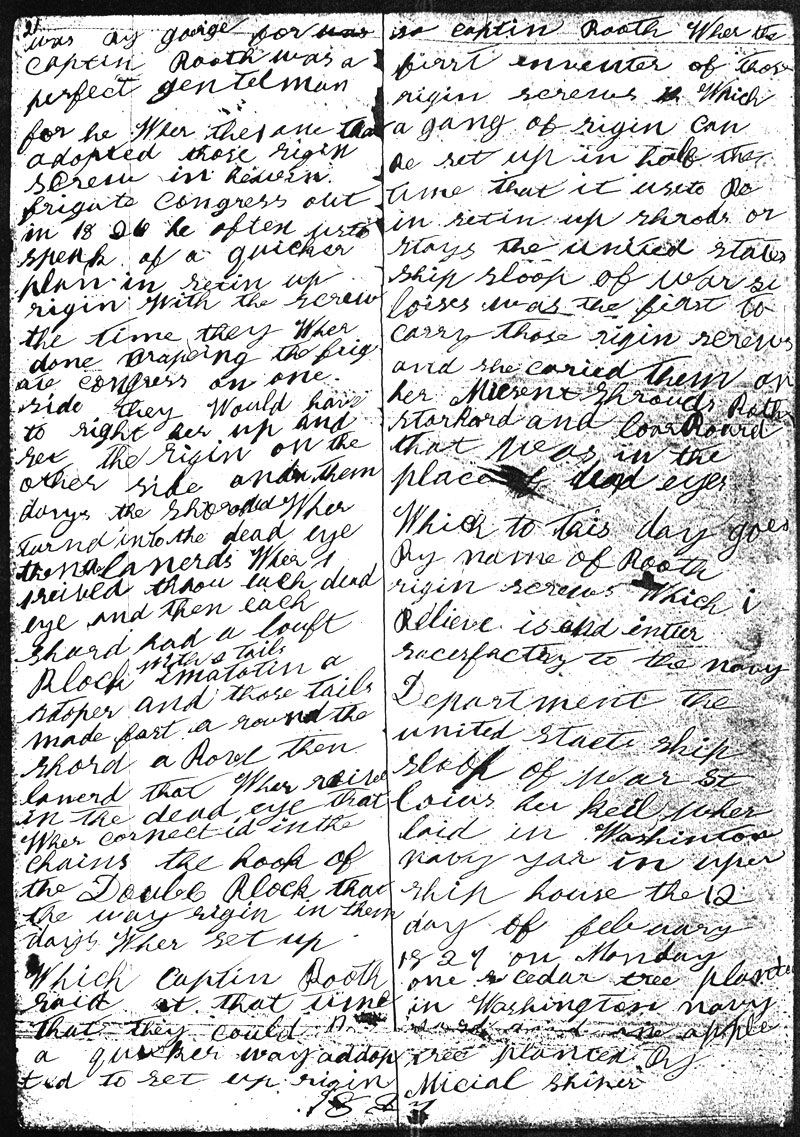 21
was By goirge for was
captin Booth was a
perfect gentelman
for he Wher the one that
adopted those rigin
screw in heavin.
frigate Congress out
in 1826 he often usto
speak of a quicker
plan in setin up
rigin With the screw
the time they Wher
done the frig
ate congress on one.
side they Would have
to right her up and
set the rigin on the
other side and in them
days the Wher
turnd into the dead eye
the lanerds Wher
reived throu each dead
eye and then each
shard had a louft
Block with a tails
a
stoper and those tails
made fast a round the
shord a Bove then
lanerd that Wher reived
in the dead eye that
Wher connect id in the
chains the hook of
the Double Block that
the way rigin in them
days Wher set up
Which Captin Booth
said at that time
that they could
a quicker way addop
ted to set up rigin
so captin Booth Wher the
firrt inventer of those
rigin screws Which
a gang of rigin can
Be set up in half the
time that it useto Be
in setin up shrods or
stays the united states
ship sloop of war st
loises was the first to
carry those rigin screws
and she caried them on
her Misent shrouds Both
starBord and loarBoard
that was in the
place of dead eyes
Which to this day goes
By name of Booth
rigin screws Which i
Believe is and intier
sacerfactry to the navy
Department the
united staets ship
sloop of war st
loius her keil wher
laid in Washinton
navy yar in uper
ship house the 12
day of febuary
1827 on Monday
one cedar tree planted
in Washington navy
yard and one apple
tree planted By
Micial shiner
1827